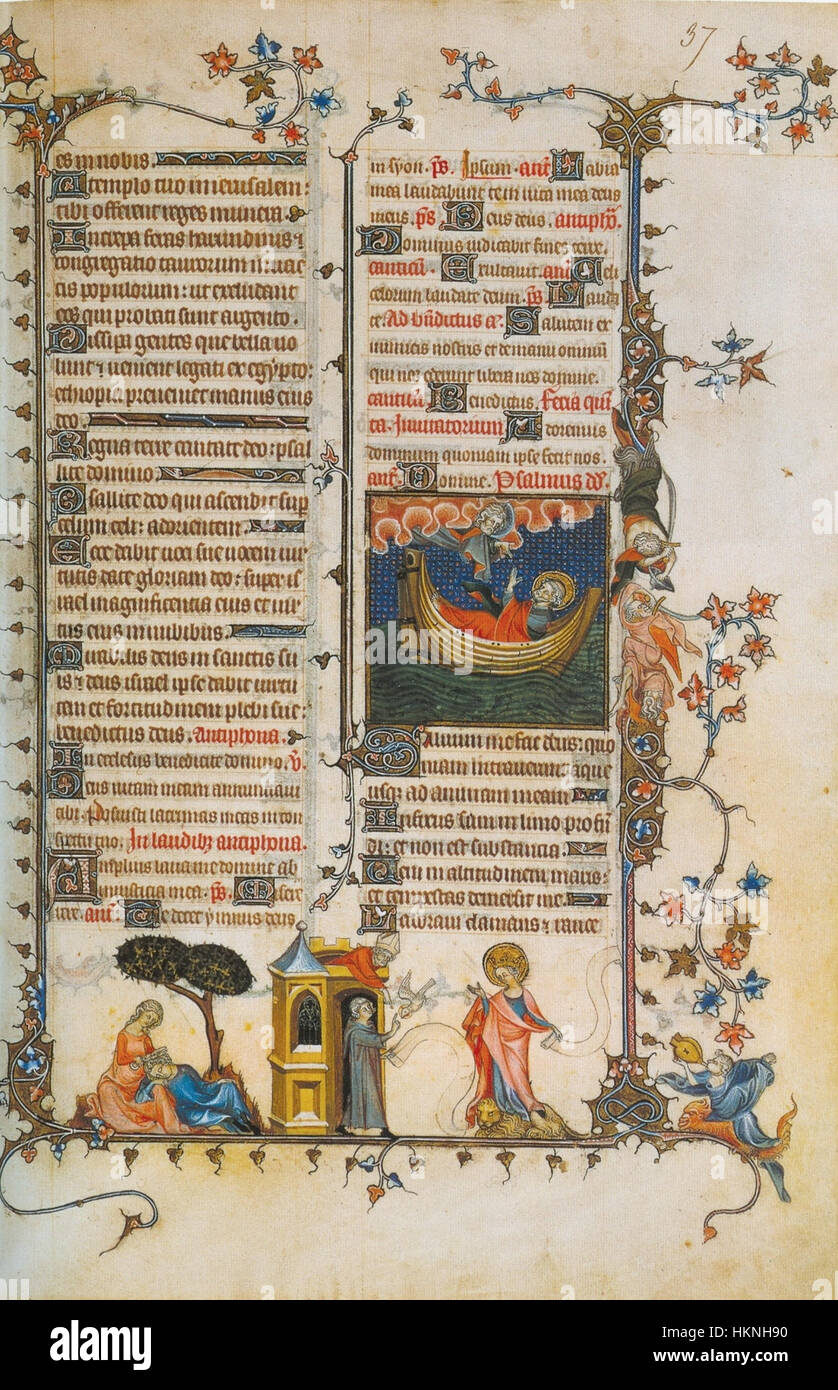 37
es in nobis
A templo tuo in ierusalem:
tibi offerent reges munera.
Increpa feras harundinis &
congregatio taurorum in uac
cis populorum: ut excludant
eos qui probati sunt argento.
Dissipa gentes que bella uo
lunt & uenient legati ex egypto:
ethiopia preueniet manus eius
deo.
Regna terre cantate deo: psal
lite domino
Psallite deo qui ascendit sup
celum celi: ad orientem.
Ecce dabit uoci sue uocem uir
tutis date gloriam deo: super is
rael magnificentia eius et uir
tus eius in nubibus.
Mirabilis deus in sanctis su
is & deus israel ipse dabit uirtu
tem et fortitudinem plebi sue:
benedictus deus. Antiphona.
In ecclesiis benedicite domino. V.
Deus uitam meam annunciaui
tibi. Posuisti lacrimas meas in con
spectu tuo. In laudibz antiphona.
Amplius laua me domine ab
iniusticia mea. ps. Misere
rere. ant. Te decet ymnus deus
in syon. ps. Ipsum. ant. Labia
mea laudabunt te in uita mea deus
meus. ps. Deus deus. antipho.
Dominus iudicabit fines terre.
canticu. Exultauit. ant. Celi
celorum laudate deum. ps. Lauda
te. Ad bndictus a. Salutem ex
inimicis nostris et de manu omniu
qui nos oderunt libera nos domine.
canticu. Benedictus. Feria quin
ta. Inuitatorium. Adoremus
dominum quoniam ipse fecit nos.
ant. Domine. Psalmus dd.
Saluum me fac deus: quo
niam intrauerunt aque
usq ad animam meam
Infixus sum in limo profun
di: et non est substancia.
Veni in altitudinem maris:
et tempestas demersit me.
Laboraui clamans & rauce
alamy
alamy
Image ID: HKNH90
www.alamy.com